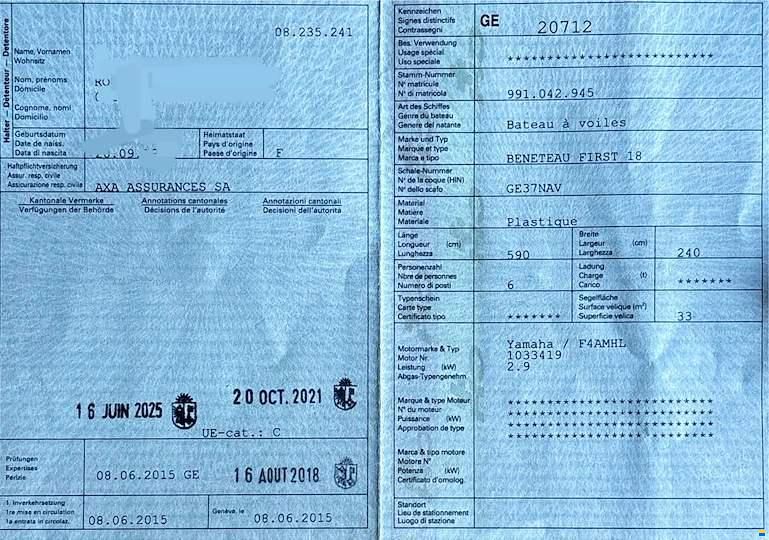 Halter – Détenteur – Detentore
08.235.241
Name, Vornamen
Wohnsitz
Nom, prénoms
Domicile
RO
Cognome, nomi
Domicilio
Geburtsdatum
Date de naiss.
Data di nascita
Heimatstaat
Pays d'origine
Paese d'origine
F
Haftpflichtversicherung
Assur. resp. civile
Assicurazione resp. civile
AXA ASSURANCES SA
Kantonale Vermerke
Verfügungen der Behörde
Annotations cantonales
Décisions de l'autorité
Annotazioni cantonali
Decisioni dell'autorità
16 JUIN 2025
20 OCT. 2021
UE-cat.: C
Prüfungen
Expertises
Perizie
08.06.2015 GE
16 AOUT 2018
1. Inverkehrsetzung
1re mise en circulation
1a entrata in circolaz.
08.06.2015
Genève, le
08.06.2015
Kennzeichen
Signes distinctifs
Contrassegni
GE
20712
Bes. Verwendung
Usage spécial
Uso speciale
***********************
Stamm-Nummer
N° matricule
N° di matricola
991.042.945
Art des Schiffes
Genre du bateau
Genere del natante
Bateau à voiles
Marke und Typ
Marque et type
Marca e tipo
BENETEAU FIRST 18
Schale-Nummer
N° de la coque (HIN)
N° dello scafo
GE37NAV
Material
Matière
Materiale
Plastique
Länge
Longueur (cm)
Lunghezza
590
Breite
Largeur (cm)
Larghezza
240
Personenzahl
Nbre de personnes
Numero di posti
6
Ladung
Charge (t)
Carico
*******
Typenschein
Carte type
Certificato tipo
*******
Segelfläche
Surface vélique (m²)
Superficie velica
33
Motormarke & Typ
Motor Nr.
Leistung (kW)
Abgas-Typengenehm.
Yamaha / F4AMHL
1033419
2.9
Marque & type Moteur
N° du moteur
Puissance (kW)
Approbation de type
***********************
***********************
***********************
***********************
Marca & tipo motore
Motore N°
Potenza (kW)
Certificato d'omolog.
Standort
Lieu de stationnement
Luogo di stazione